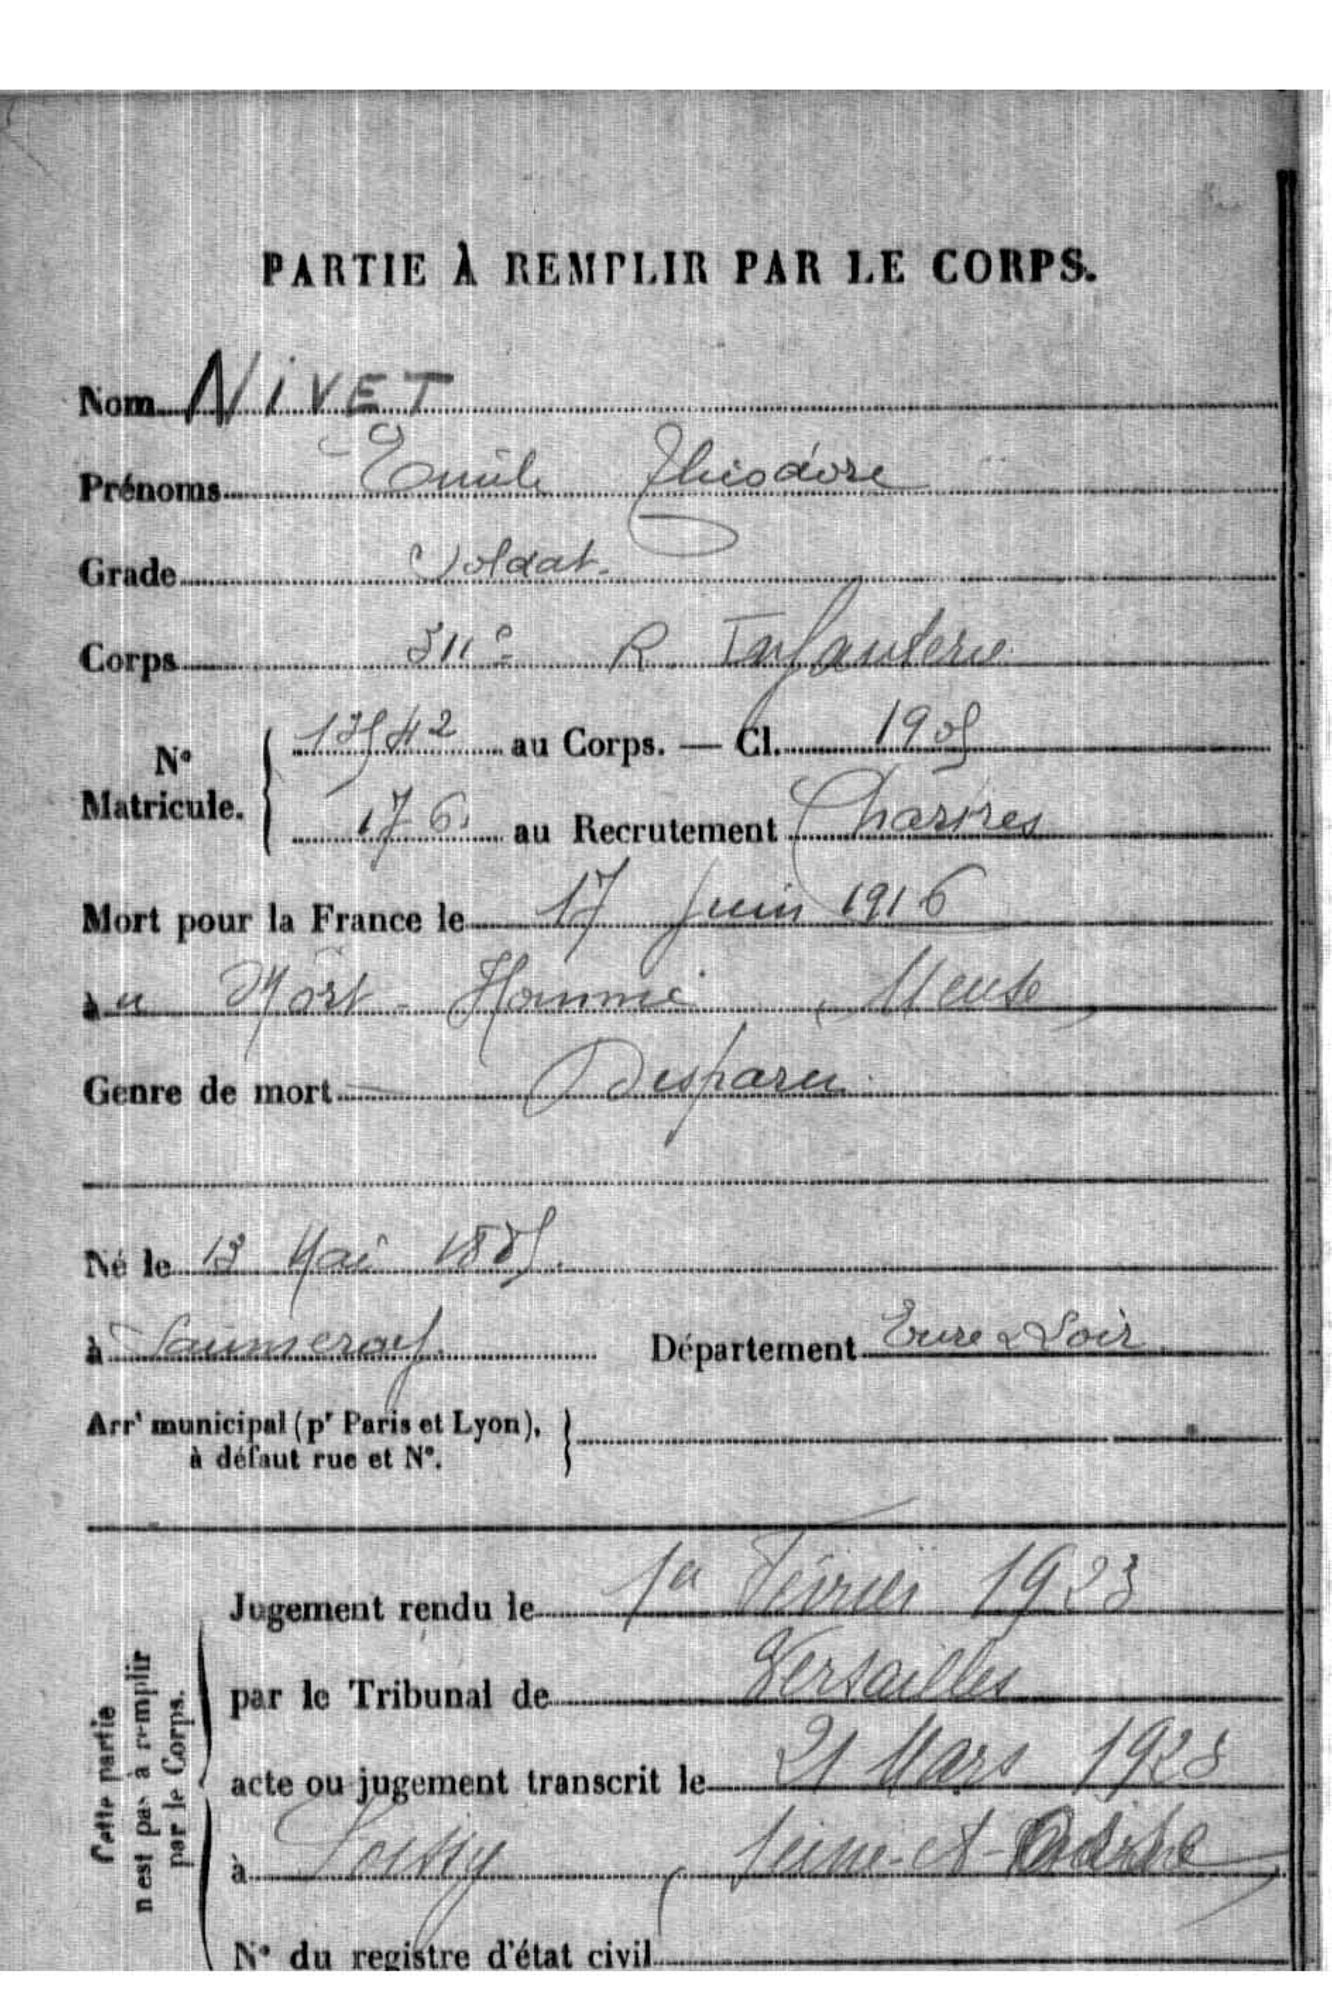 PARTIE À REMPLIR PAR LE CORPS.
Nom NIVET
Prénoms Emile Théodore
Grade Soldat.
Corps 311e R Infanterie
N° Matricule. { 13542 au Corps. — Cl. 1905
176. au Recrutement Chartres
Mort pour la France le 17 Juin 1916
à u Mort-Homme, Meuse
Genre de mort Disparu
Né le 13 Mai 1885.
à Saumeray. Département Eure & Loir
Arrt municipal (pr Paris et Lyon), à défaut rue et N°. }
Cette partie n'est pas à remplir par le Corps.
Jugement rendu le 1er Février 1923
par le Tribunal de Versailles
acte ou jugement transcrit le 21 Mars 1923
à Poissy, Seine-et-Oise
N° du registre d'état civil